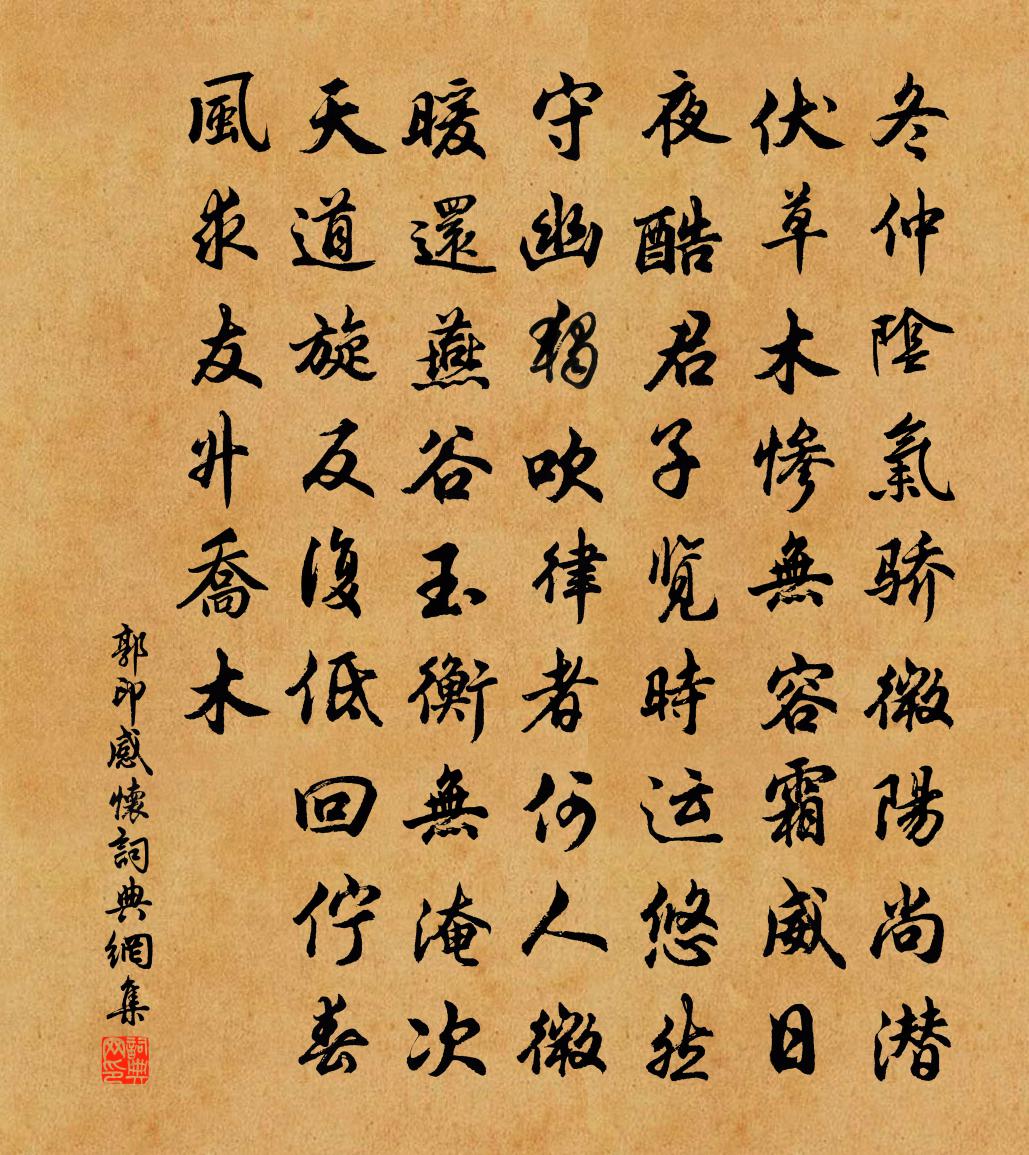 冬仲陰氣骄微陽尚潜
伏草木惨無容霜威日
夜酷君子览時运悠然
守幽獨吹律者何人微
暖還燕谷玉衡無淹次
天道旋反復低回佇春
風求友升喬木
郭印感懷詞典網集
詞典网印